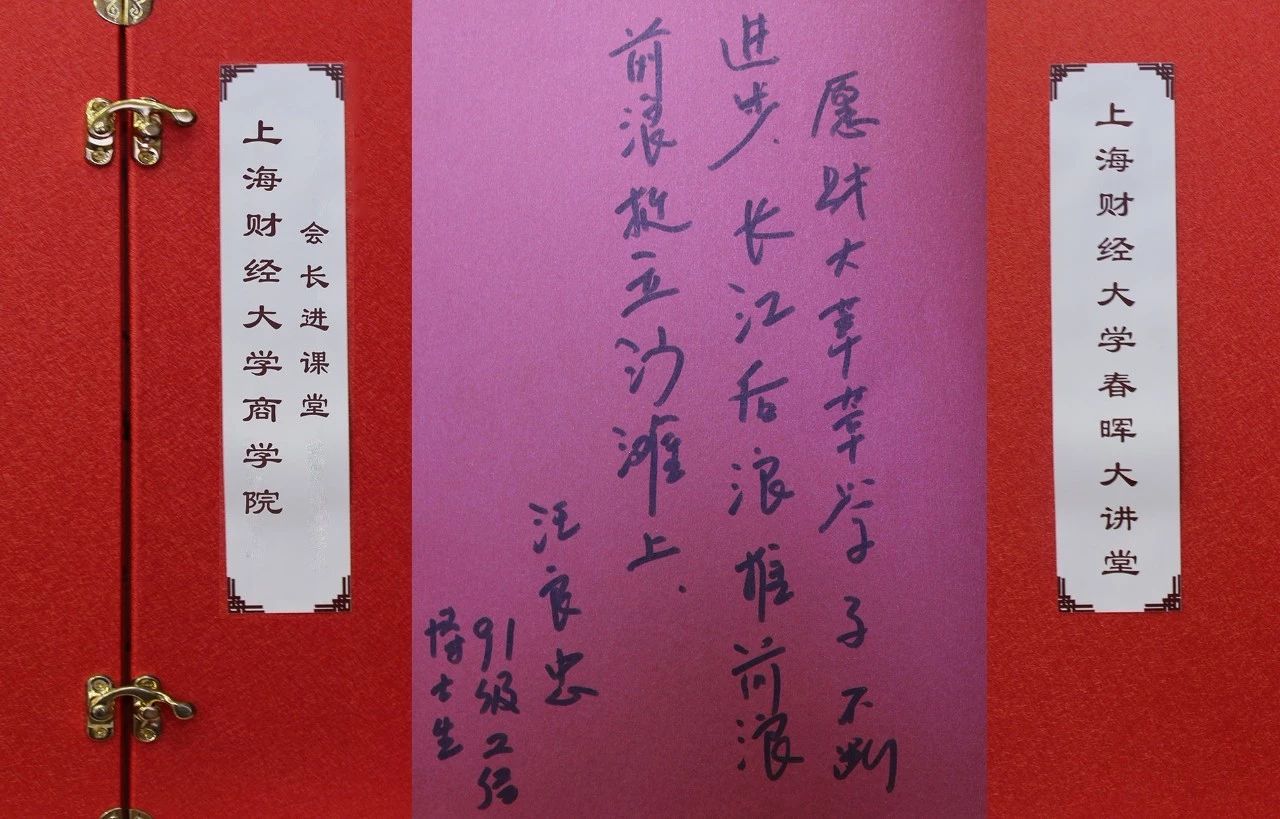 上海财经大学商学院
会长进课堂
愿财大莘莘学子不断
进步、长江后浪推前浪
前浪挺立沙滩上.
汪良忠
91级工
博士生
上海财经大学春晖大讲堂